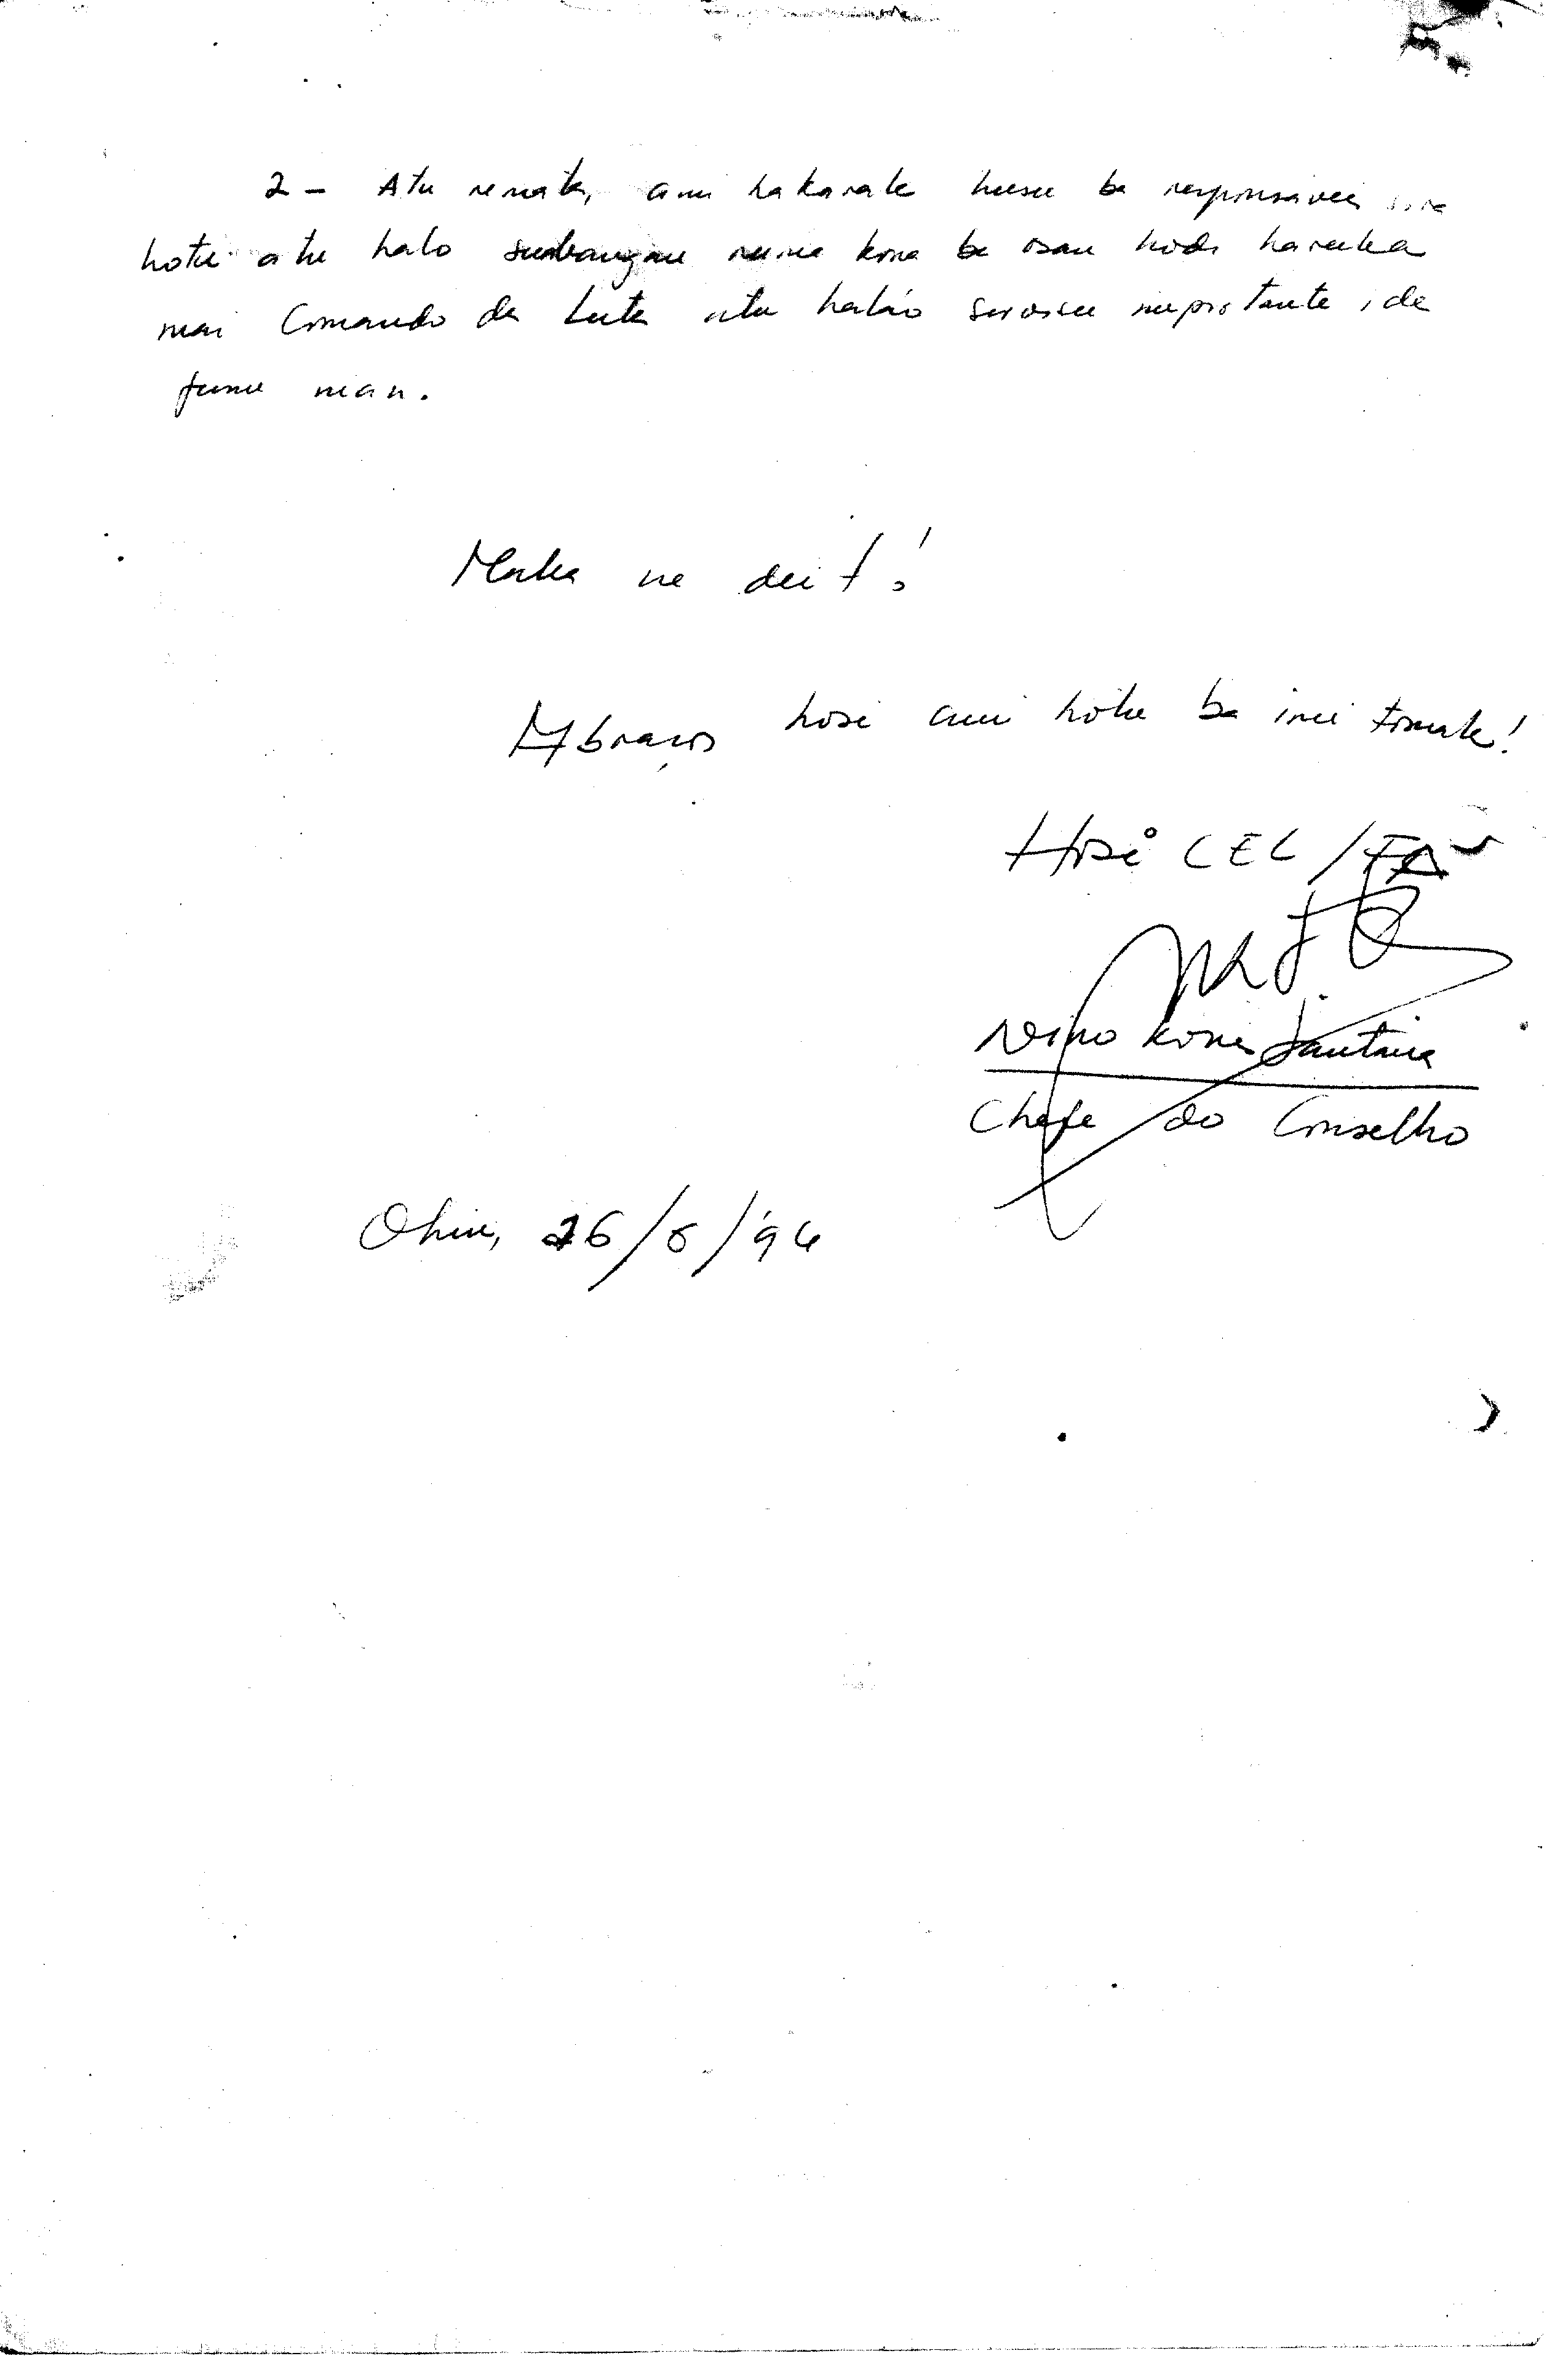 2 - Atu remata, ami hakarak husu ba responsaveis sira
hotu atu halo sumbangan ruma kona ba osan hodi haruka
mai Comando da Luta atu halao servisu importante ida
funu nian.
Maka ne deit!
Abraços hosi ami hotu ba imi tomak!
Hosi CEL/FA
Nino Konis Santana
Chefe do Conselho
26/6/94